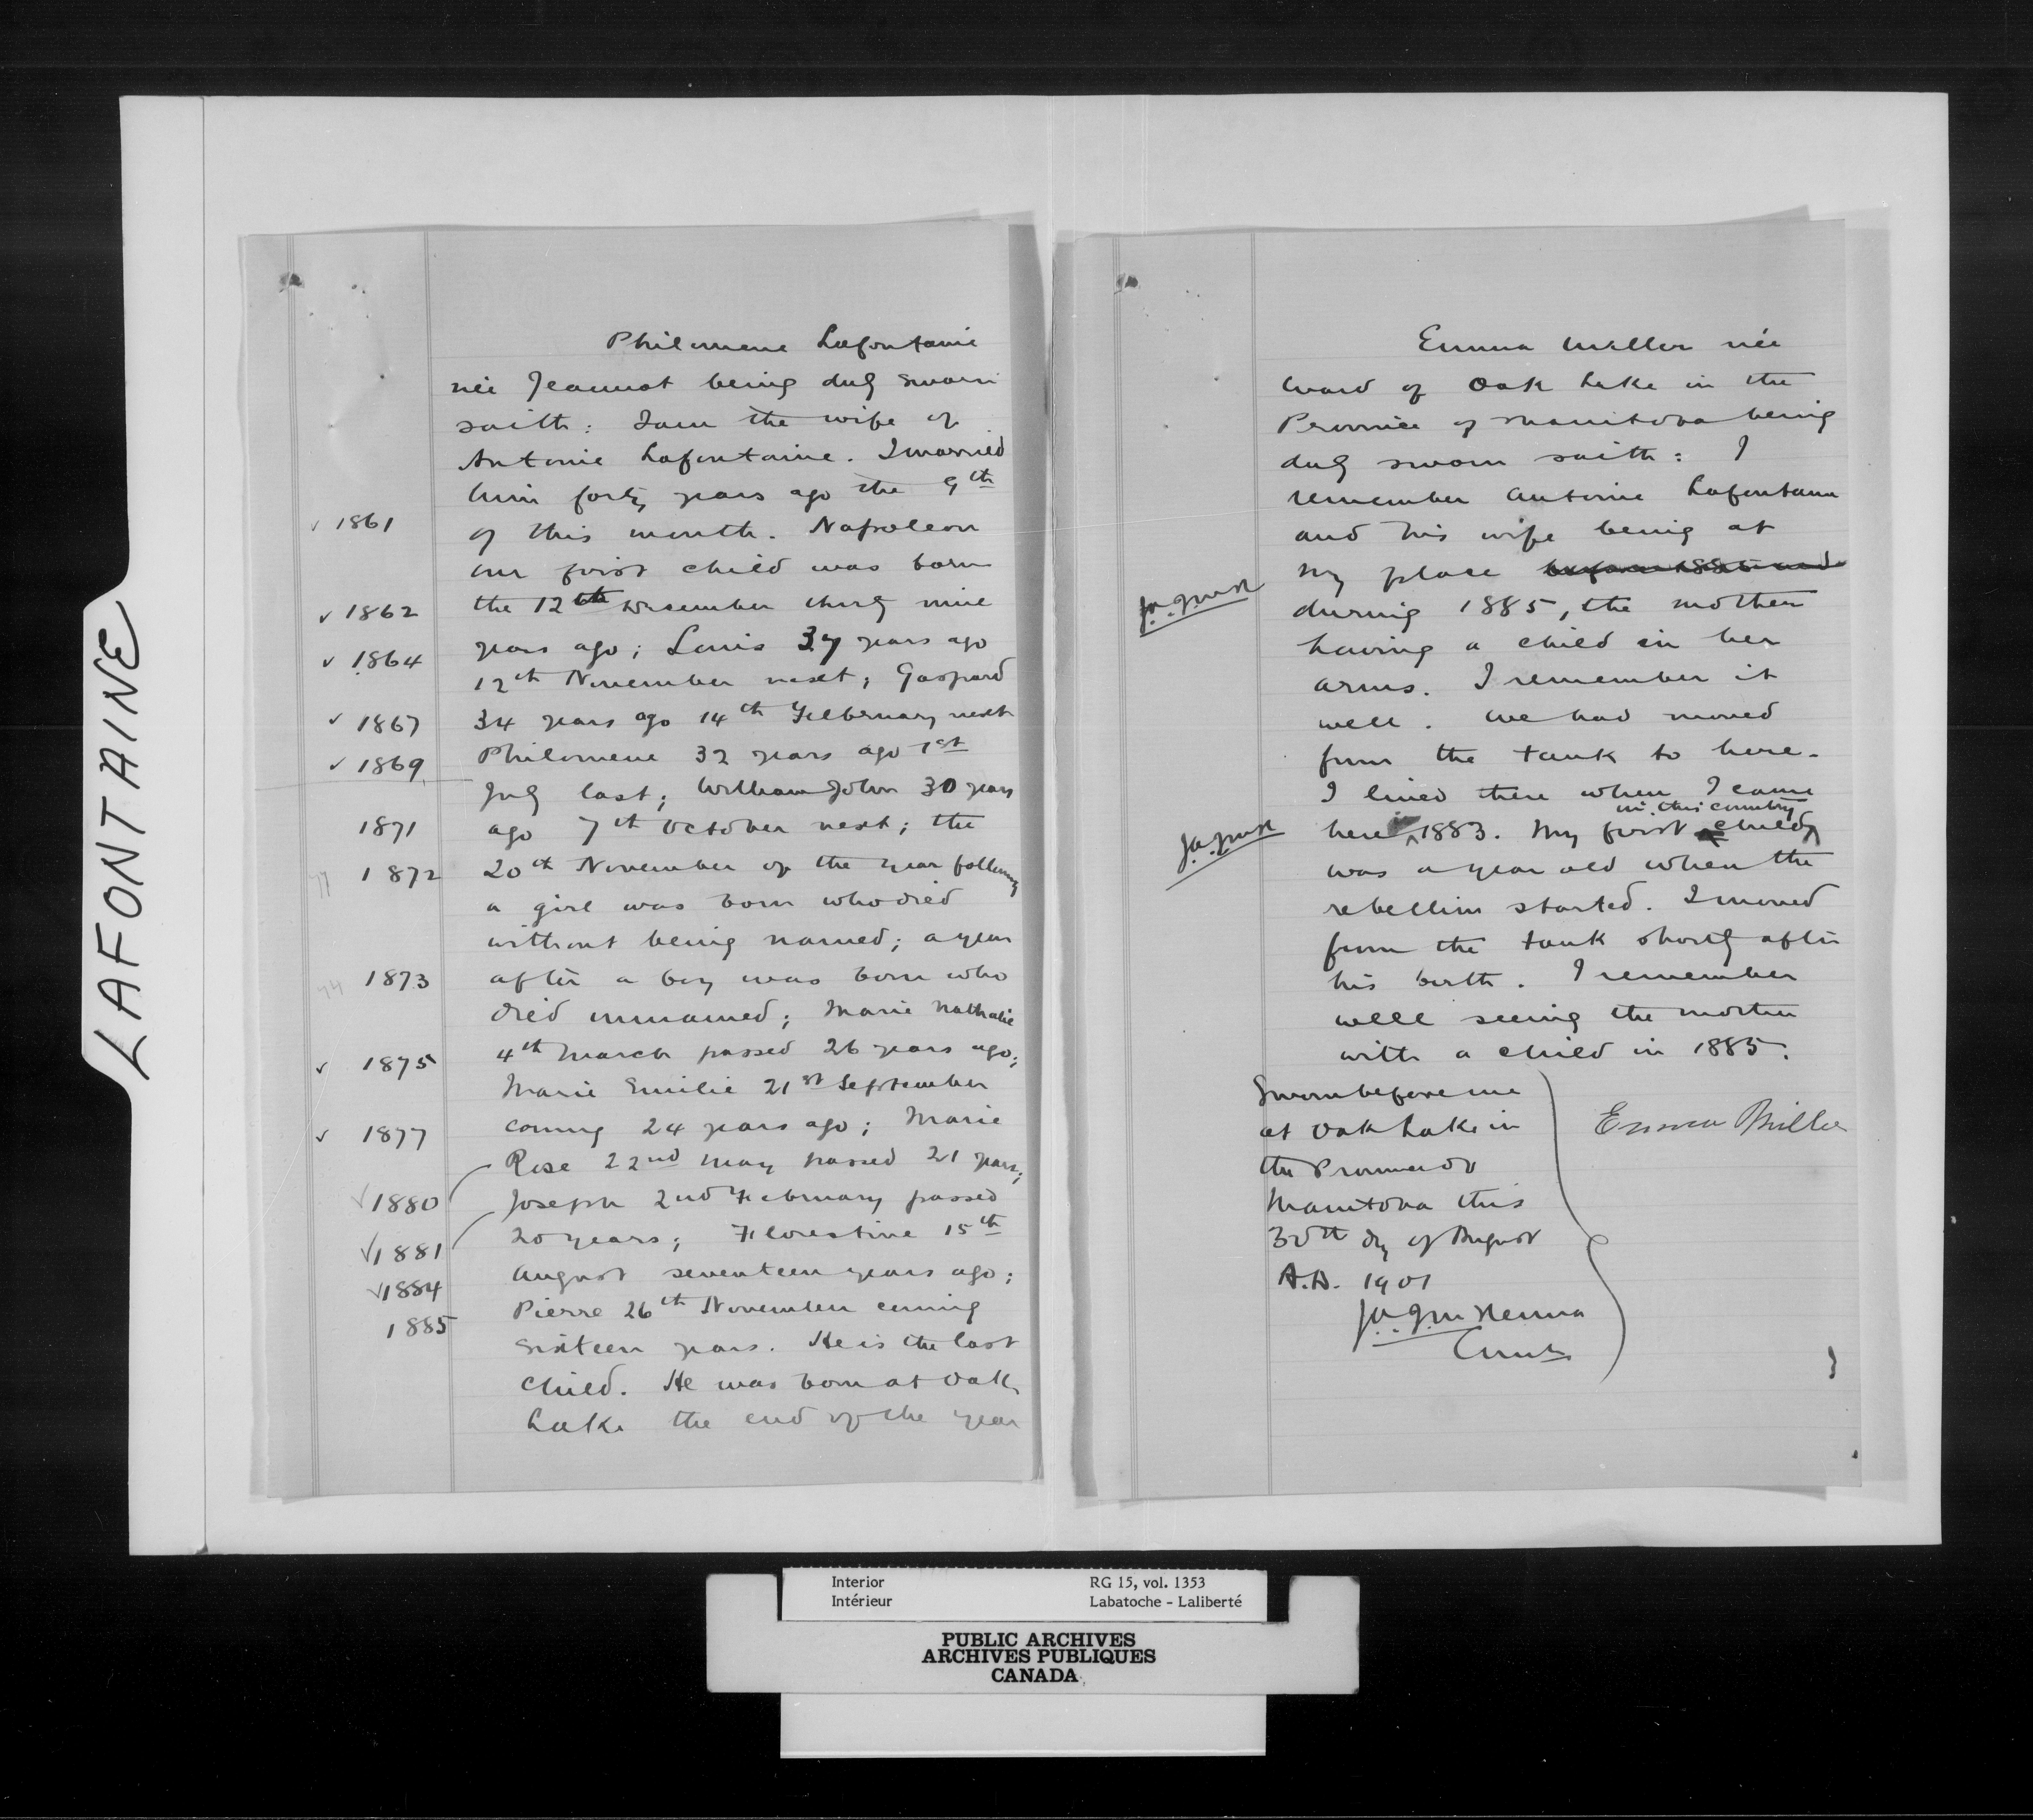 LAFONTAINE
Philomene Lafontaine
née Jeannot being duly sworn
saith: I am the wife of
Antoine Lafontaine. I married
him forty years ago the 9th
1861 of this month. Napoleon
our first child was born
1862 the 12th December thirty nine
years ago; Louis 37 years ago
1864 12th November next; Gaspard
1867 34 years ago 14th Februrary next
1869 Philomene 32 years ago 1st
July last; William John 30 years
1871 ago 7th October next; the
1872 20th November of the year following
a girl was born who died
without being named; a year
1873 after a boy was born who
died unnamed; Marie Nathalie
1875 4th March passed 26 years ago;
Marie Emilie 21st September
1877 coming 24 years ago; Marie
Rose 22nd May passed 21 years;
1880 Joseph 2nd February passed
1881 20 years; Florestine 15th
1884 August seventeen years ago;
1885 Pierre 26th November coming
sixteen years. He is the last
child. He was born at Oak
Lake the end of the year
Emma Miller née
Ward of Oak Lake in the
Province of Manitoba being
duly sworn saith: I
remember Antoine Lafontaine
and his wife being at
my place before 1885 and
during 1885, the mother
having a child in her
arms. I remember it
well. We had moved
from the tank to here.
I lived there when I came
in this country
here 1883. My first child
was a year old when the
rebellion started. I moved
from the tank shortly after
his birth. I remember
well seeing the mother
with a child in 1885.
Sworn before me
at Oak Lake in
the Province of
Manitoba this
30th day of August
A.D. 1901
Emma Miller
J.A.J. McKenna
Comr
Interior RG 15, vol. 1353
Intérieur Labatoche - Laliberté
PUBLIC ARCHIVES
ARCHIVES PUBLIQUES
CANADA